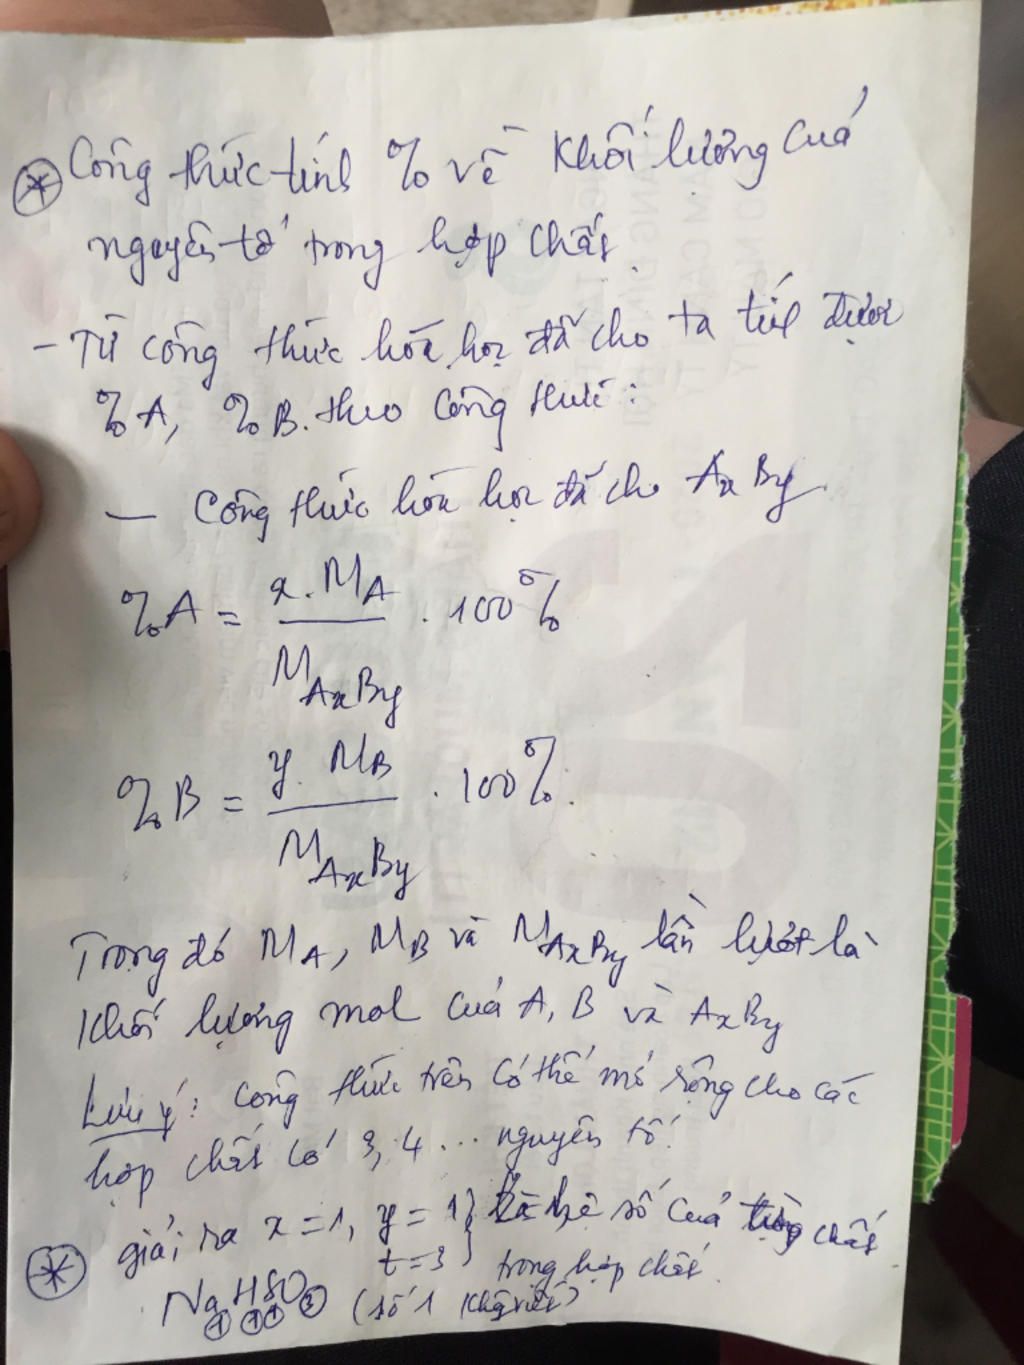 Công thức tính % về khối lượng của
nguyên tố trong hợp chất
- Từ công thức hóa học đã cho ta tính được
%A, %B. theo công thức:
— Công thức hóa học đã cho AxBy
%A = x. MA / MAxBy . 100%
%B = y. MB / MAxBy . 100%.
Trong đó MA, MB và MAxBy lần lượt là
khối lượng mol của A, B và AxBy
Lưu ý: Công thức trên có thể mở rộng cho các
hợp chất có 3, 4 ... nguyên tố.
giải ra x = 1, y = 1 } là hệ số của từng chất
t = 3 trong hợp chất
NaHSO3 (số 1 không viết)
1 1 1